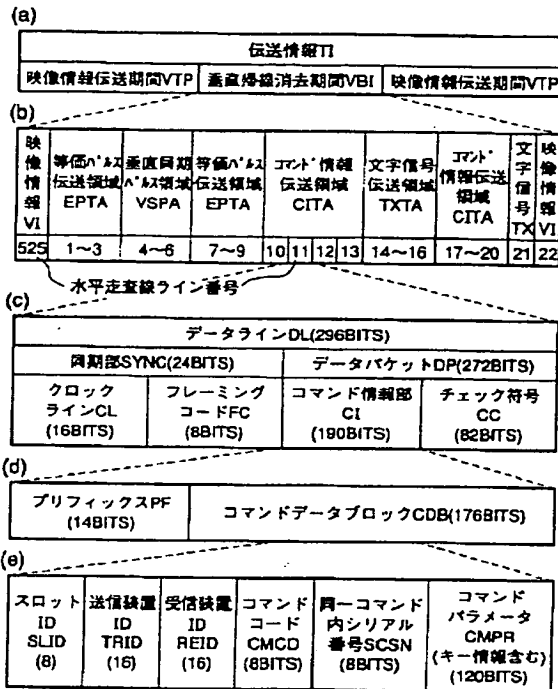 (a)
伝送情報TI
映像情報伝送期間VTP 垂直帰線消去期間VBI 映像情報伝送期間VTP
(b)
映像情報VI
等価パルス
伝送領域
EPTA
垂直同期
パルス領域
VSPA
等価パルス
伝送領域
EPTA
コマンド情報
伝送領域
CITA
文字信号
伝送領域
TXTA
コマンド
情報伝送
領域
CITA
文字信号TX
映像情報VI
525 1〜3 4〜6 7〜9 10 11 12 13 14〜16 17〜20 21 22
水平走査線ライン番号
(c)
データラインDL(296BITS)
同期部SYNC(24BITS) データパケットDP(272BITS)
クロック
ラインCL
(16BITS)
フレーミング
コードFC
(8BITS)
コマンド情報部
CI
(190BITS)
チェック符号
CC
(82BITS)
(d)
プリフィックスPF
(14BITS)
コマンドデータブロックCDB(176BITS)
(e)
スロット
ID
SLID
(8)
送信装置
ID
TRID
(16)
受信装置
ID
REID
(16)
コマンド
コード
CMCD
(8BITS)
同一コマンド
内シリアル
番号SCSN
(8BITS)
コマンド
パラメータ
CMPR
(キー情報含む)
(120BITS)